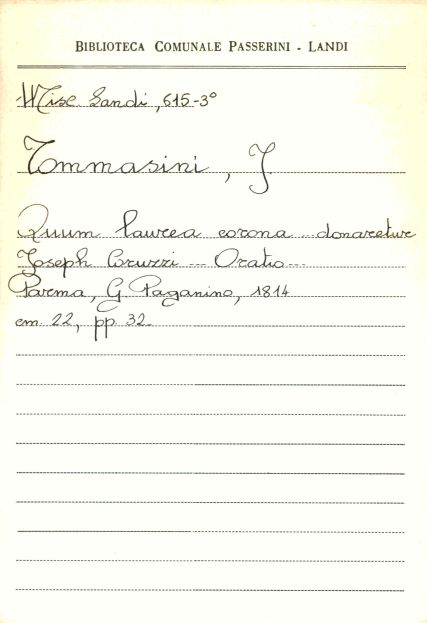 BIBLIOTECA COMUNALE PASSERINI - LANDI
Misc Landi, 615-3°
Tommasini, J
Quum laurea corona ... donaretur
Joseph Coruzzi ... Oratio...
Parma, G. Paganino, 1814
cm. 22, pp. 32.